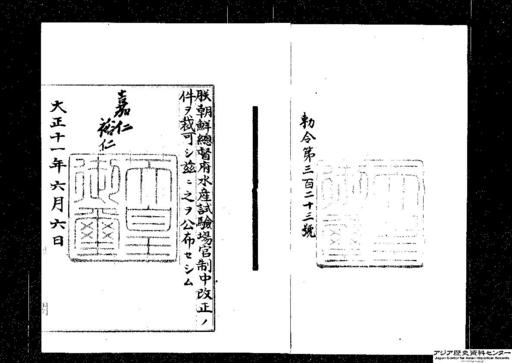 勅令第三百二十三號
天皇
御璽
朕朝鮮總督府水産試驗場官制中改正ノ
件ヲ裁可シ茲ニ之ヲ公布セシム
嘉仁
裕仁
天皇
御璽
大正十一年六月六日
アジア歴史資料センター
Japan Center for Asian Historical Records